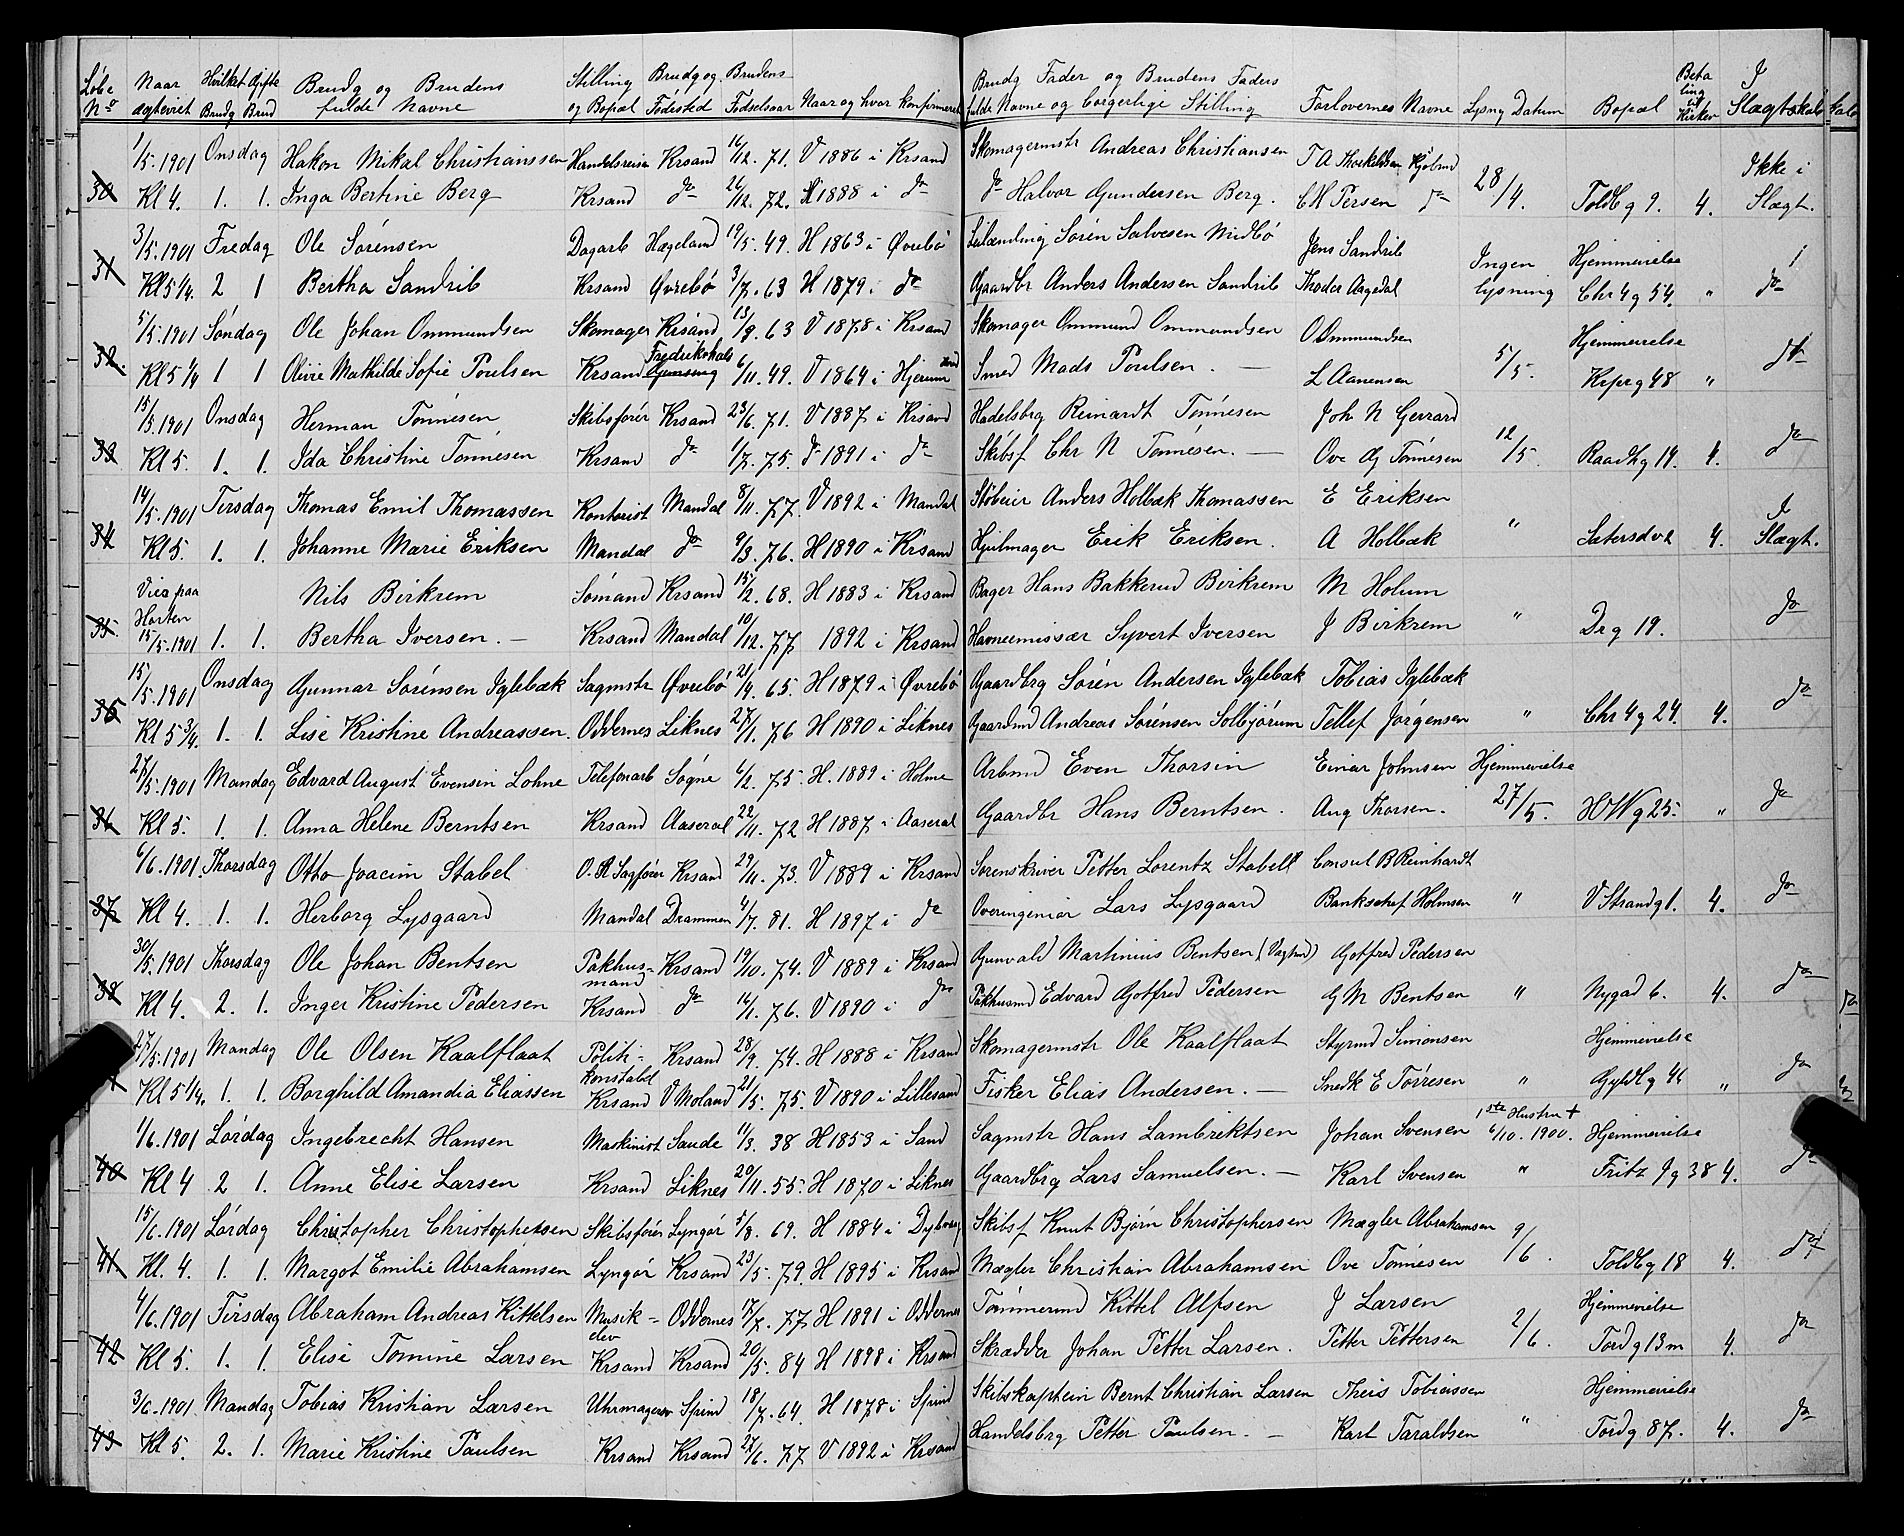 Løbe No | Naar ægteviet | Hvilket Gifte Brudg Brud | Brudg og Brudens fulde Navne | Stilling og Bopæl | Brudg og Brudens Fødested | Fødselsaar | Naar og hvor konfirmeret | Brudg Fader og Brudens Faders fulde Navne og borgerlige Stilling | Forlovernes Navne | Lysng Datum | Bopæl | Betaling til Kirken | I Slægtskab
1/5.1901 Onsdag Hakon Mikal Christianssen Handelsreisn Krsand 16/12. 71. V 1886 i Krsand Skomagermstr Andreas Christiansen T A Thorkildsen Kjøbmd Ikke i
30 Kl 4. 1. 1. Inga Bertine Berg Krsand do 26/12. 72. H 1888 i do do Halvor Gundersen Berg. C H Persen do 28/4. Toldb g 9. 4. Slægt.
3/5.1901 Fredag Ole Sørensen Dagarb Hægeland 19/5. 49. H 1863 i Øvrebø Leilænding Søren Salvesen Midbø Jens Sandrib Ingen Hjemmevielse
31 Kl 5 1/4. 2 1 Bertha Sandrib Krsand Øvrebø 3/7. 63 H 1879 i do Gaardbr Anders Andersen Sandrib Thodor Aagedal lysning Chr 4 g 54. " do
5/5.1901 Søndag Ole Johan Ommundsen Skomager Krsand 13/9. 63 V 1878 i Krsand Skomager Ommund Ommundsen O Ommundsen Hjemmevielse
32. Kl 5 1/4 1 1 Olivie Mathilde Sofie Poulsen Krsand Fredrikshald 6/11. 49. V 1864 i Smed Mads Poulsen. — L Aanensen 5/5. Krprg 48 " do
15/5.1901 Onsdag Herman Tønnesen Skibsfører Krsand 23/6. 71. V 1887 i Krsand Hadelsbrg Reinardt Tønnesen Joh N Gerrard
33 Kl 5. 1. 1. Ida Christine Tønnesen Krsand do 1/7. 75. do 1891 i do Skibsf Chr N Tønnesen. — Ove Tønnesen 12/5. Raadhg 19. 4. do
14/5.1901 Tirsdag Thomas Emil Thomassen Kontorist Mandal 8/11. 77. V 1892 i Mandal Støbeier Anders Holbæk Thomassen E Eriksen I
34 Kl 5. 1. 1. Johanne Marie Eriksen Mandal do 9/3. 76. H 1890 i Krsand Hjulmager Erik Eriksen. A Holbæk " Sætersdvl 4. Slægt.
Vies paa Nils Birkrem Sømand Krsand 15/2. 68. H 1883 i Krsand Bager Hans Bakkerud Birkrem M Holum
35. Horten 15/5.1901 1. 1. Bertha Iversen. — Krsand Mandal 10/12. 77 1892 i Krsand Havnecmissær Syvert Iversen J Birkrem " Dr g 19. do
15/5.1901 Onsdag Gunnar Sørensen Iglebæk Sagmstr Øvrebø 21/4. 65. H 1879 i Øvrebø Gaardbrg Søren Andersen Iglebæk Tobias Iglebæk
35 Kl 5 3/4. 1. 1. Lise Kristine Andreassen. Oddernes Liknes 27/1. 76 H 1890 i Liknes Gaardmd Andreas Sørensen Solbjørum Tellef Jørgensen " Chr 4 g 24. 4. do
27/5.1901 Mandag Edvard August Evensen Lohne Telefonarb Søgne 6/2. 75. H. 1889 i Holme Arbmd Even Thorsen Einar Johnsen Hjemmevielse
36 Kl 5. 1. 1. Anna Helene Berntsen Krsand Aaseral 22/11. 72 H 1887 i Aaseral Gaardbr Hans Berntsen. Aug Thorsen. 27/5. H W g 25. " do
6/6.1901 Thorsdag Otto Joacim Stabel O. R Sagfører Krsand 29/11. 73. V 1889 i Krsand Sorenskriver Petter Lorentz Stabell Consul B Reinhardt
37 Kl 4. 1. 1. Herborg Lysgaard Mandal Drammen 4/7. 81. H 1897 i do Overingeniør Lars Lysgaard Bankschef Holmsen " V Strandg 1. 4. do
30/5.1901 Thorsdag Ole Johan Bentsen Pakhusmand Krsand 19/10. 74. V 1889 i Krsand Gunvald Martinius Bentsen (Vagtmd) Gotfred Pedersen
38 Kl 4. 2. 1. Inger Kristine Pedersen Krsand do 16/1. 76. V 1890 i do Pakhusmd Edvard Gotfred Pedersen G M Bentsen " Nygad 6. 4. do
27/5.1901 Mandag Ole Olsen Kaalflaat Politikonstabel Krsand 28/9. 74. H 1888 i Krsand Skomagermstr Ole Kaalflaat Styrmd Simonsen Hjemmevielse
Kl 5 1/4. 1. 1. Borghild Amandia Eliassen Krsand V Moland 21/5. 75. V 1890 i Lillesand Fisker Elias Andersen. — Snedk E Tørresen " Gyldl g 46 " do
1/6.1901 Lørdag Ingebrecht Hansen Maskinist Saude 11/3. 38 H 1853 i Sand Sagmstr Hans Lambriktsen Johan Svensen 1ste Hustru † 6/10. 1900. Hjemmevielse
40 Kl 4 2 1. Anne Elise Larsen Krsand Liknes 20/11. 55. H 1870 i Liknes Gaardbrg Lars Samuelsen. — Karl Svensen " Fritz J g 38 4. do
15/6.1901 Lørdag Christopher Christophersen Skibsfører Lyngør 5/8. 69. H 1884 i Dybvaag Skibsf Knut Bjørn Christophersen Mægler Abrahamsen
41 Kl. 4. 1. 1. Margot Emilie Abrahamsen Lyngør Krsand 23/5. 79. H 1895 i Krsand Mægler Christian Abrahamsen Ove Tønnesen 9/6. Toldb g 18 4. do
4/6.1901 Tirsdag Abraham Andreas Kittelsen Musikelev Oddernes 17/7. 77 H 1891 i Oddernes Tømmermd Kittel Alfsen J Larsen Hjemmevielse
42 Kl 5. 1. 1. Elise Tomine Larsen Krsand Krsand 20/5. 84 H 1898 i Krsand Skrædder Johan Petter Larsen. Petter Pettersen 2/6. Tord g 13 m 4. do
3/6.1901 Mandag Tobias Kristian Larsen Uhrmager Spind 18/7. 64. H 1878 i Spind Skibskaptein Bernt Christian Larsen Theis Tobiassen Hjemmevielse
43 Kl 5. 2. 1. Marie Kristine Paulsen Krsand Krsand 27/6. 77 V 1892 i Krsand Handelsbrg Petter Paulsen. — Karl Taraldsen " Tord g 87. 4. do